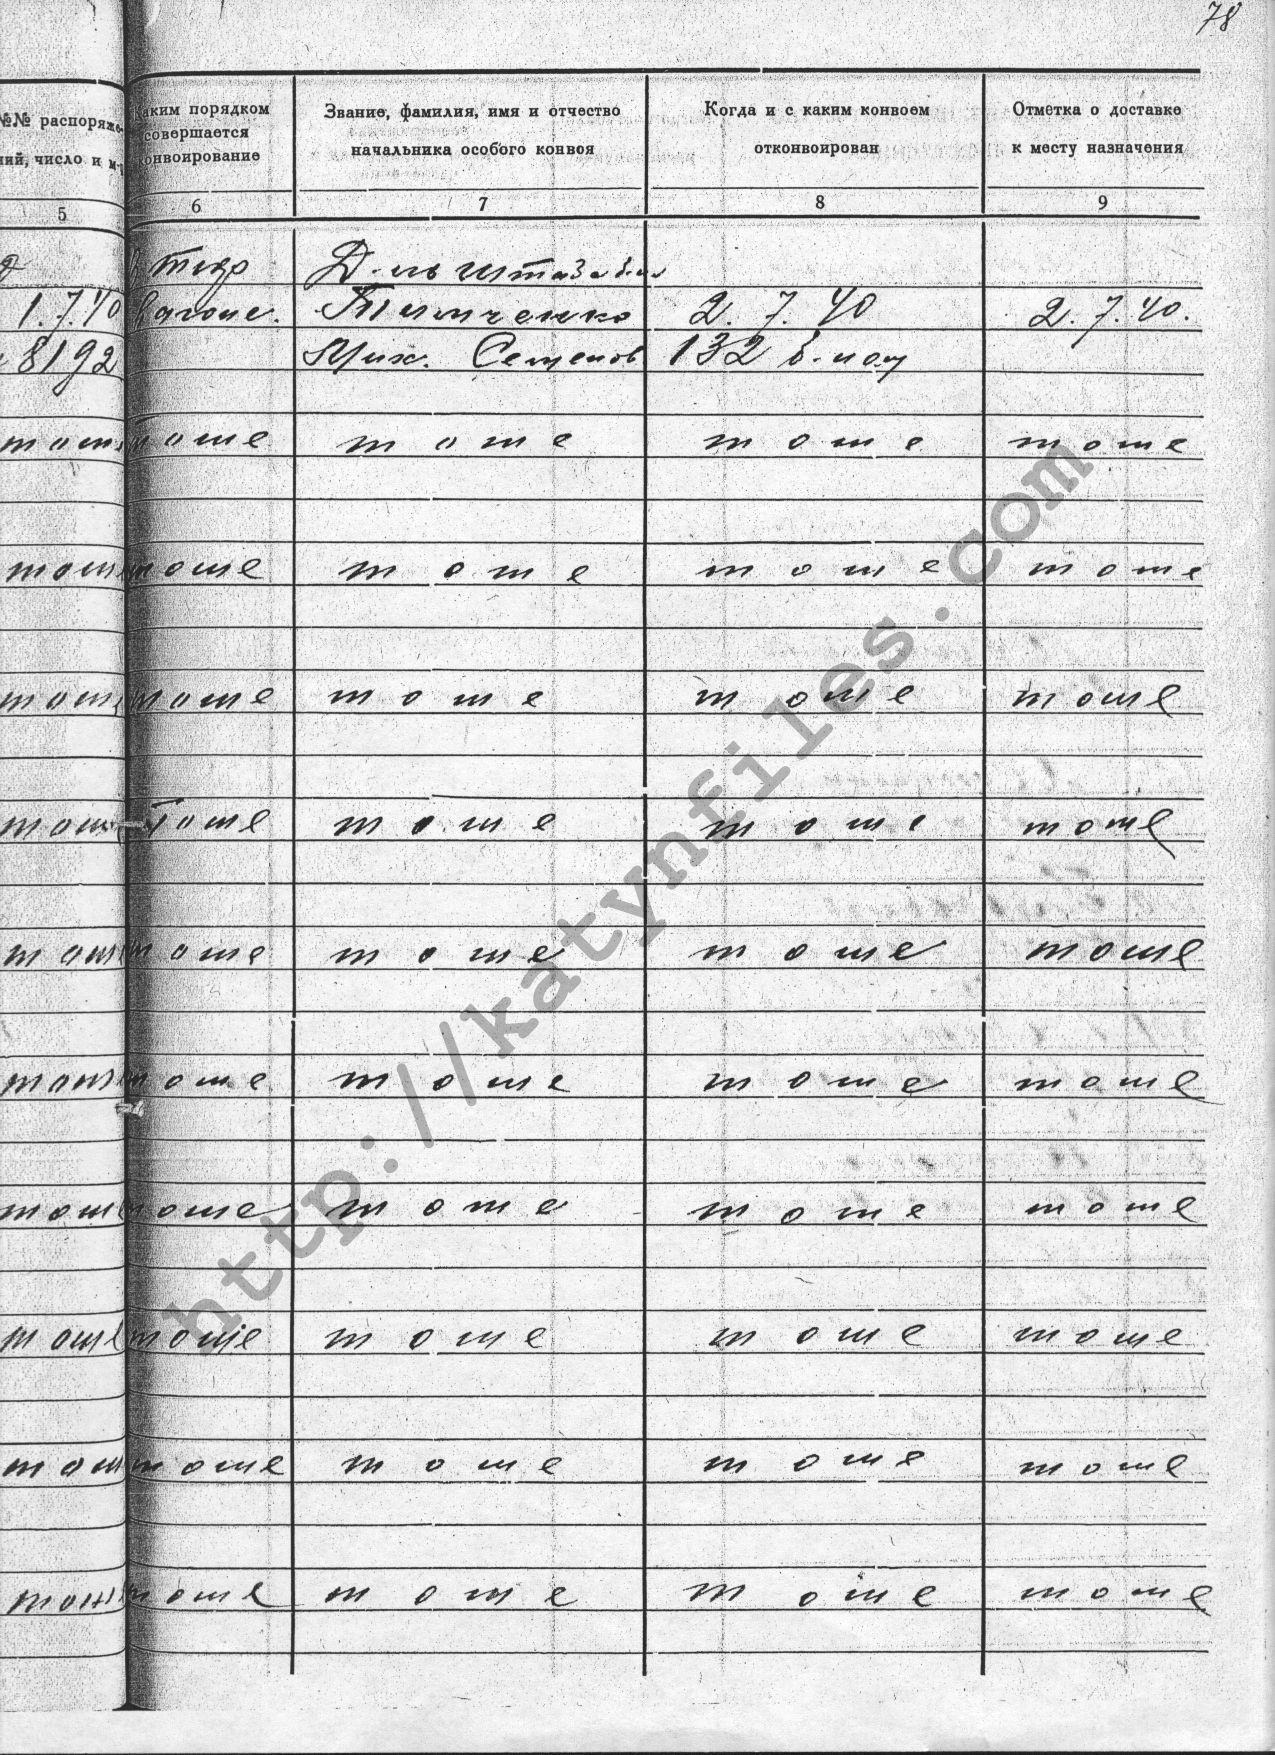 78
№№ распоряже-
ний, число и м-ц
Каким порядком
совершается
конвоирование
Звание, фамилия, имя и отчество
начальника особого конвоя
Когда и с каким конвоем
отконвоирован
Отметка о доставке
к месту назначения
5 6 7 8 9
В тюр
1.7.40 вагоне. Тимченко 2. 7. 40 2.7.40.
8192 Мих. Семенов 132 б-ном
тоже тоже тоже тоже тоже
тоже тоже тоже тоже тоже
тоже тоже тоже тоже тоже
тоже тоже тоже тоже тоже
тоже тоже тоже тоже тоже
тоже тоже тоже тоже тоже
тоже тоже тоже тоже тоже
тоже тоже тоже тоже тоже
тоже тоже тоже тоже тоже
тоже тоже тоже тоже тоже
http://katynfiles.com